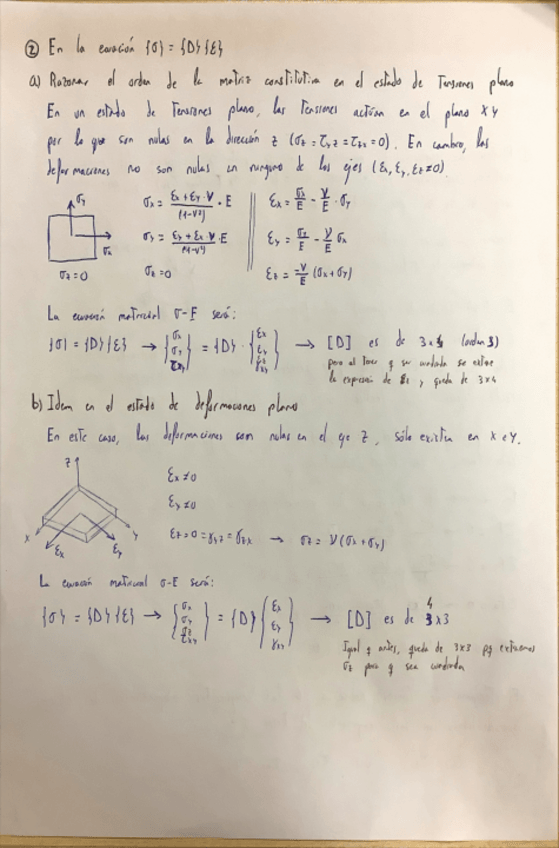 ② En la ecuación {σ} = {D}{ε}
a) Razonar el orden de la matriz constitutiva en el estado de Tensiones plano
En un estado de Tensiones plano, las Tensiones actúan en el plano XY
por lo que son nulas en la dirección z (σz = τyz = τzx = 0). En cambio, las
deformaciones no son nulas en ninguno de los ejes (εx, εy, εz ≠ 0)
σy
σx
σz = 0
σx = (εx + εy · ν)/(1-ν²) · E
σy = (εy + εx · ν)/(1-ν²) · E
σz = 0
εx = σx/E - ν/E · σy
εy = σy/E - ν/E σx
εz = -ν/E (σx + σy)
La ecuación matricial σ-E será:
{σ} = {D}{ε} → {σx σy τxy} = {D} · {εx εy γxy} → [D] es de 3x4 (orden 3)
para al tener q ser cuadrada se extrae
la expresión de εz y queda de 3x4
b) Idem en el estado de deformaciones plano
En este caso, las deformaciones son nulas en el eje z, sólo existen en x e y.
z
x
y
εx
εy
εx ≠ 0
εy ≠ 0
εz = 0 = γyz = γzx → σz = ν(σx + σy)
La ecuación matricial σ-E será:
{σ} = {D}{ε} → {σx σy σz τxy} = {D} {εx εy γxy} → [D] es de 4x3
Igual q antes, queda de 3x3 pq extraemos
σz para q sea cuadrada